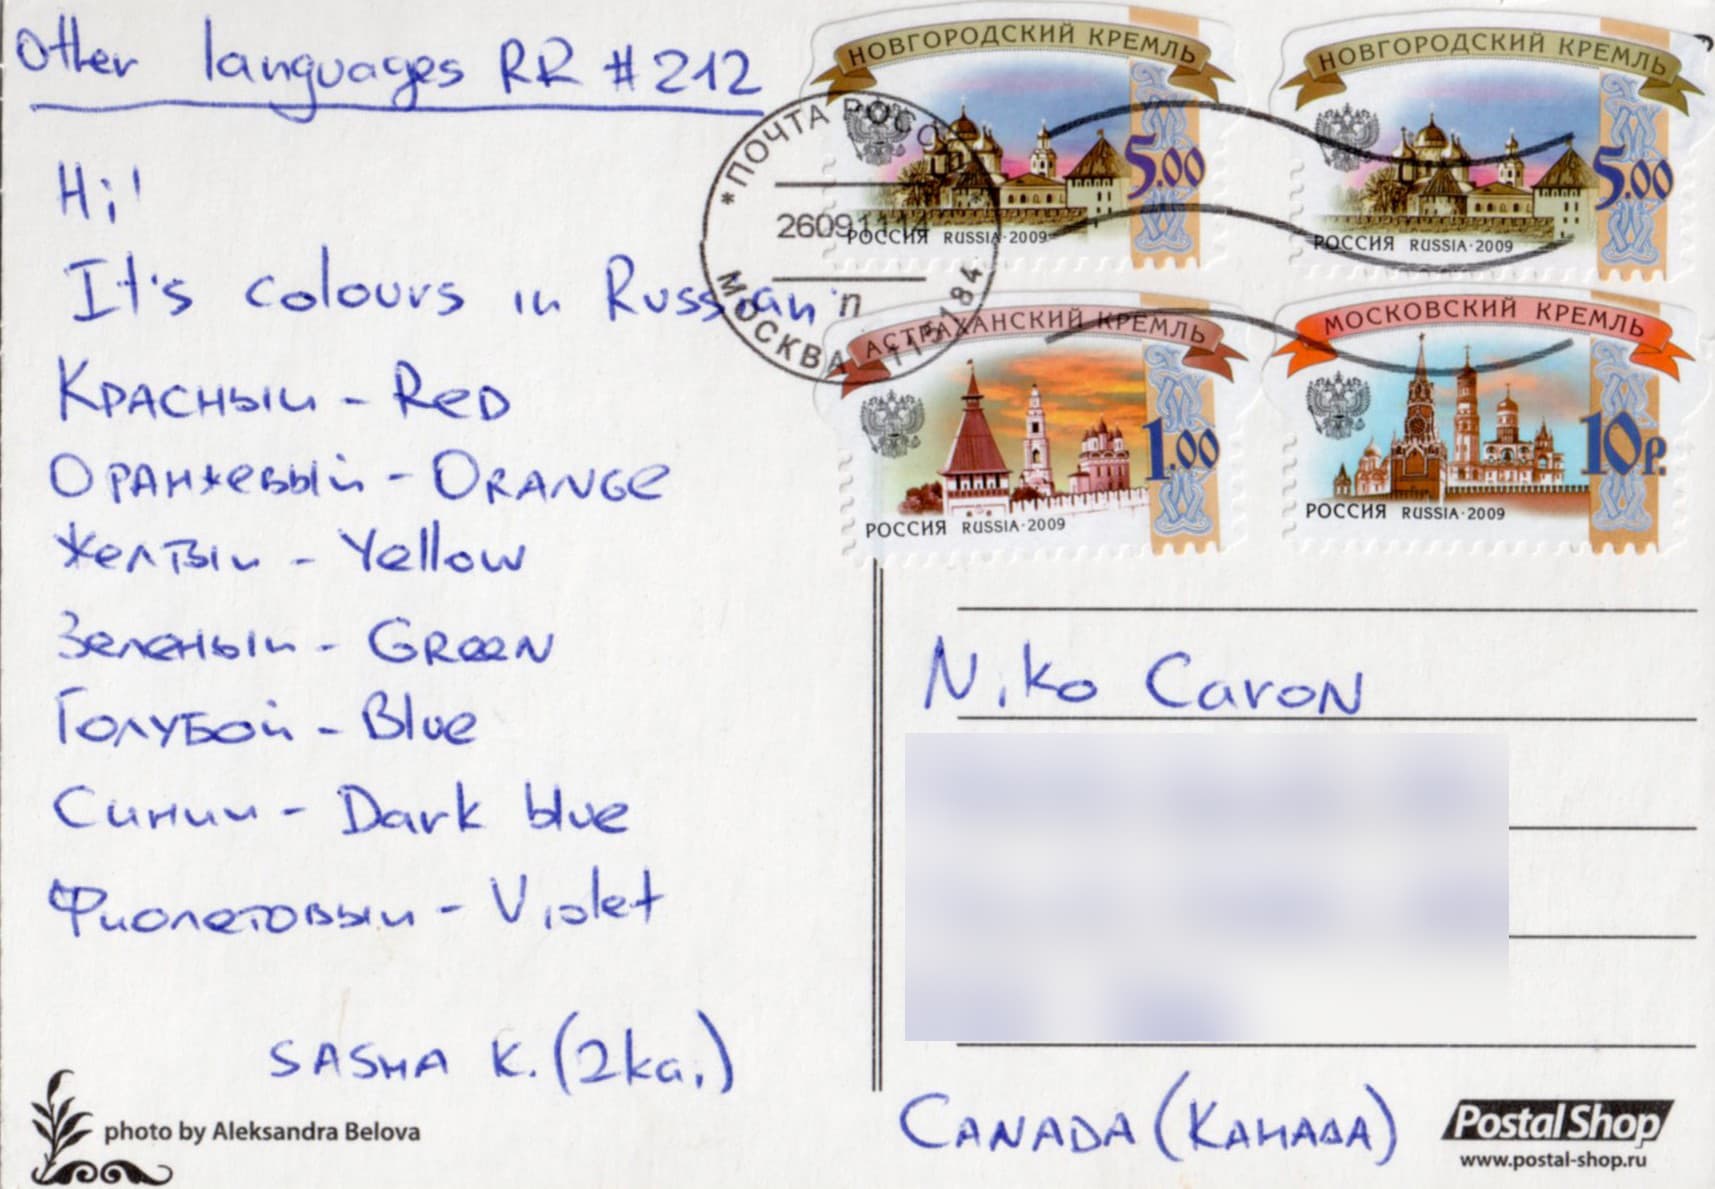 Other languages RR #212
Hi!
It's colours in Russian
Красный - Red
Оранжевый - Orange
Желтый - Yellow
Зеленый - Green
Голубой - Blue
Синий - Dark blue
Фиолетовый - Violet
SASHA K. (2ka.)
photo by Aleksandra Belova
НОВГОРОДСКИЙ КРЕМЛЬ
5.00
РОССИЯ RUSSIA·2009
НОВГОРОДСКИЙ КРЕМЛЬ
5.00
РОССИЯ RUSSIA·2009
АСТРАХАНСКИЙ КРЕМЛЬ
1.00
РОССИЯ RUSSIA·2009
МОСКОВСКИЙ КРЕМЛЬ
10р.
РОССИЯ RUSSIA·2009
*ПОЧТА РОСС
260911
п
МОСКВА 115184
Niko Caron
CANADA (КАНАДА)
Postal Shop
www.postal-shop.ru